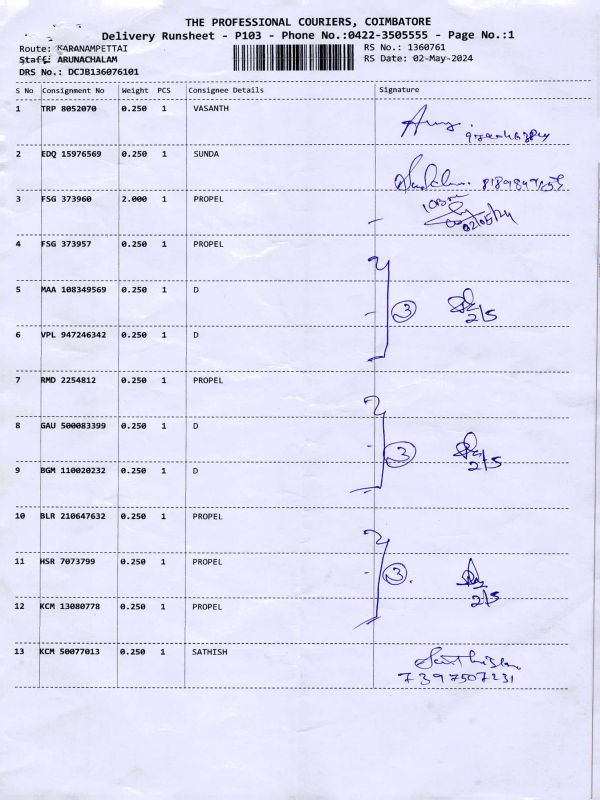 THE PROFESSIONAL COURIERS, COIMBATORE
Delivery Runsheet - P103 - Phone No.:0422-3505555 - Page No.:1
Route: KARANAMPETTAI RS No.: 1360761
Staff: ARUNACHALAM RS Date: 02-May-2024
DRS No.: DCJB136076101
S No Consignment No Weight PCS Consignee Details Signature
1 TRP 8052070 0.250 1 VASANTH
2 EDQ 15976569 0.250 1 SUNDA
3 FSG 373960 2.000 1 PROPEL
02/05/24
4 FSG 373957 0.250 1 PROPEL
5 MAA 108349569 0.250 1 D
3 2/5
6 VPL 947246342 0.250 1 D
7 RMD 2254812 0.250 1 PROPEL
8 GAU 500083399 0.250 1 D
3 2/5
9 BGM 110020232 0.250 1 D
10 BLR 210647632 0.250 1 PROPEL
11 HSR 7073799 0.250 1 PROPEL
3 2/5
12 KCM 13080778 0.250 1 PROPEL
13 KCM 50077013 0.250 1 SATHISH
7397507231